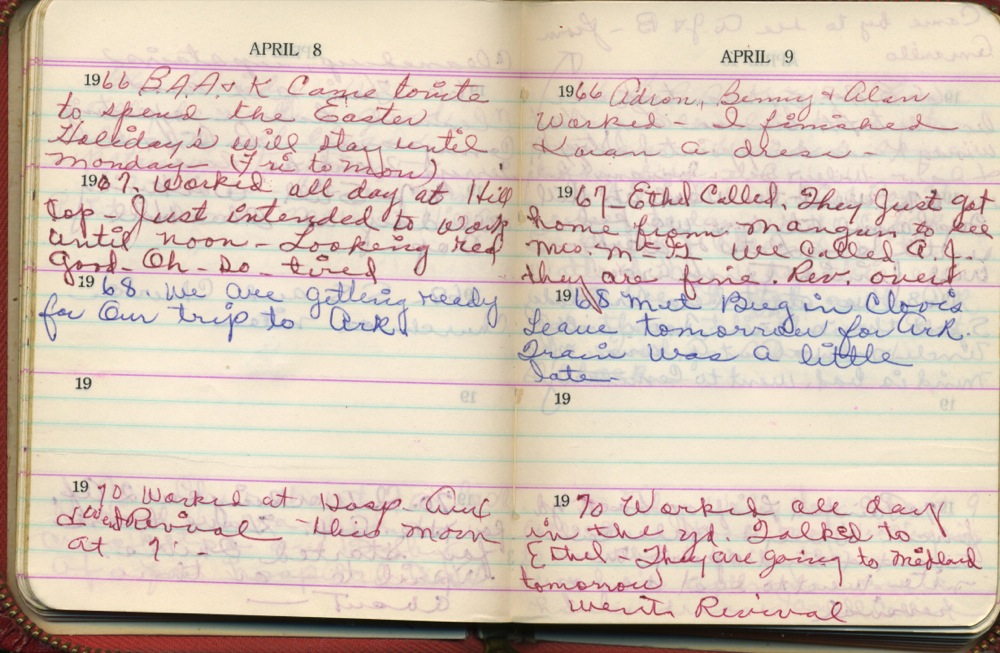 APRIL 8
1966 B.A.A & K Came tonite
to spend the Easter
Holiday's will stay until
Monday - (Fri to Mon)
1967. Worked all day at Hill
top - Just intended to work
until noon - Looking real
good - Oh - so - tired
1968. We are getting ready
for our trip to Ark
19
1970 Worked at Hosp.
Revival this morn
at 7. -
APRIL 9
1966 Adron, Benny & Alan
Worked - I finished
a dress -
1967 - Ethel Called. They Just got
home from Mangum to see
Mrs. We Called A.J.
they are fine. Rev. over
1968 Met Bug in Clovis
Leave tomorrow for Ark.
Train was a little
late -
19
1970 Worked all day
in the yd. Talked to
Ethel - They are going to Midland
tomorrow
went Revival